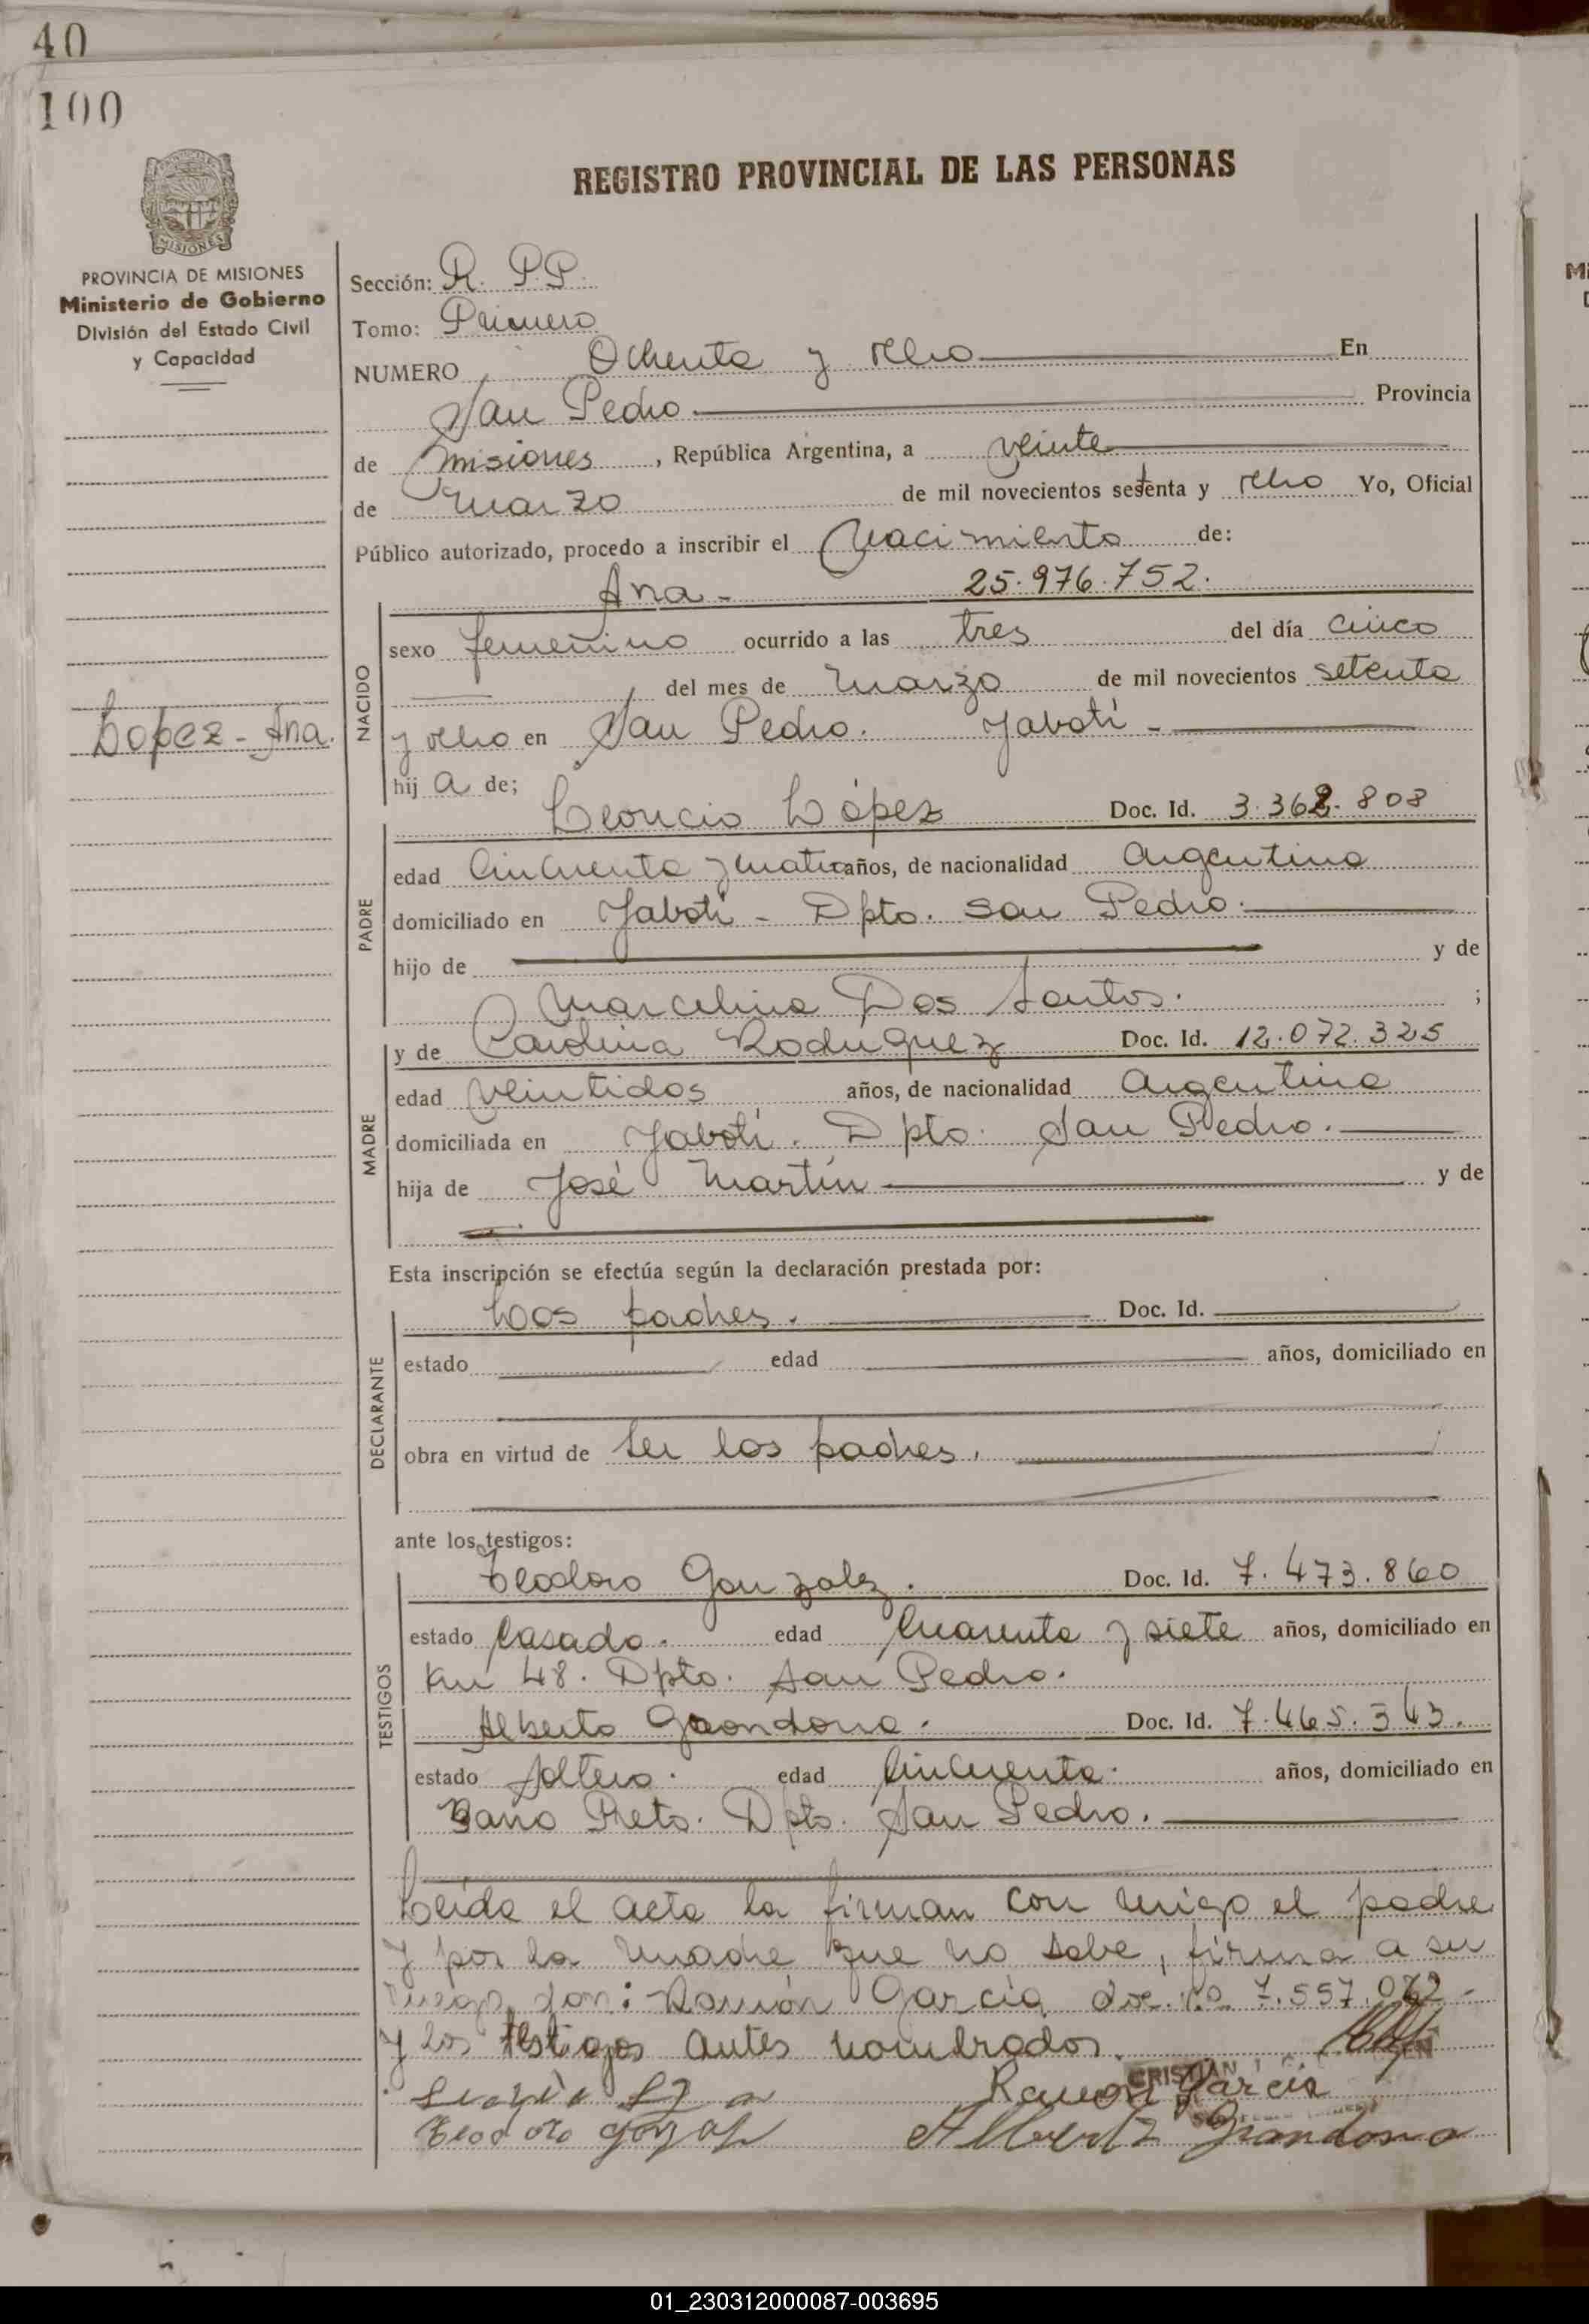 40
100
REGISTRO PROVINCIAL DE LAS PERSONAS
MISIONES
PROVINCIA DE MISIONES
Ministerio de Gobierno
División del Estado Civil
y Capacidad
Sección: R. P.P.
Tomo: Primero
NUMERO Ochenta y ocho En
San Pedro Provincia
de Misiones, República Argentina, a veinte
de Marzo de mil novecientos setenta y ocho Yo, Oficial
Público autorizado, procedo a inscribir el Nacimiento de:
Ana - 25.976.752.
NACIDO
sexo femenino ocurrido a las tres del día cinco
del mes de Marzo de mil novecientos setenta
y ocho en San Pedro. Jabotí -
Lopez - Ana.
hij a de;
Leoncio López Doc. Id. 3.362.808
PADRE
edad Cincuenta y cuatro años, de nacionalidad Argentina
domiciliado en Jaboti - Dpto. San Pedro.
hijo de y de
Marcelina Dos Santos. ;
MADRE
y de Carolina Rodriguez Doc. Id. 12.072.325
edad Veintidos años, de nacionalidad Argentina
domiciliada en Jaboti. Dpto. San Pedro.
hija de José Martín y de
Esta inscripción se efectúa según la declaración prestada por:
DECLARANTE
Los padres. Doc. Id.
estado edad años, domiciliado en
obra en virtud de ser los padres.
ante los testigos:
TESTIGOS
Teodoro Gonzalez. Doc. Id. 7.473.860
estado Casado. edad Cuarenta y siete años, domiciliado en
Km 48. Dpto. San Pedro.
Alberto Grondona. Doc. Id. 7.465.343.
estado Soltero. edad Cincuenta. años, domiciliado en
Dpto. San Pedro.
Leída el acta la firman con migo el padre
y por la madre que no sabe, firma a su
ruego don: Ramón García doc. no 7.557.
y los testigos antes nombrados.
CRISTIAN
Ramon Garcia
Teodoro Alberto Grandona
01_230312000087-003695